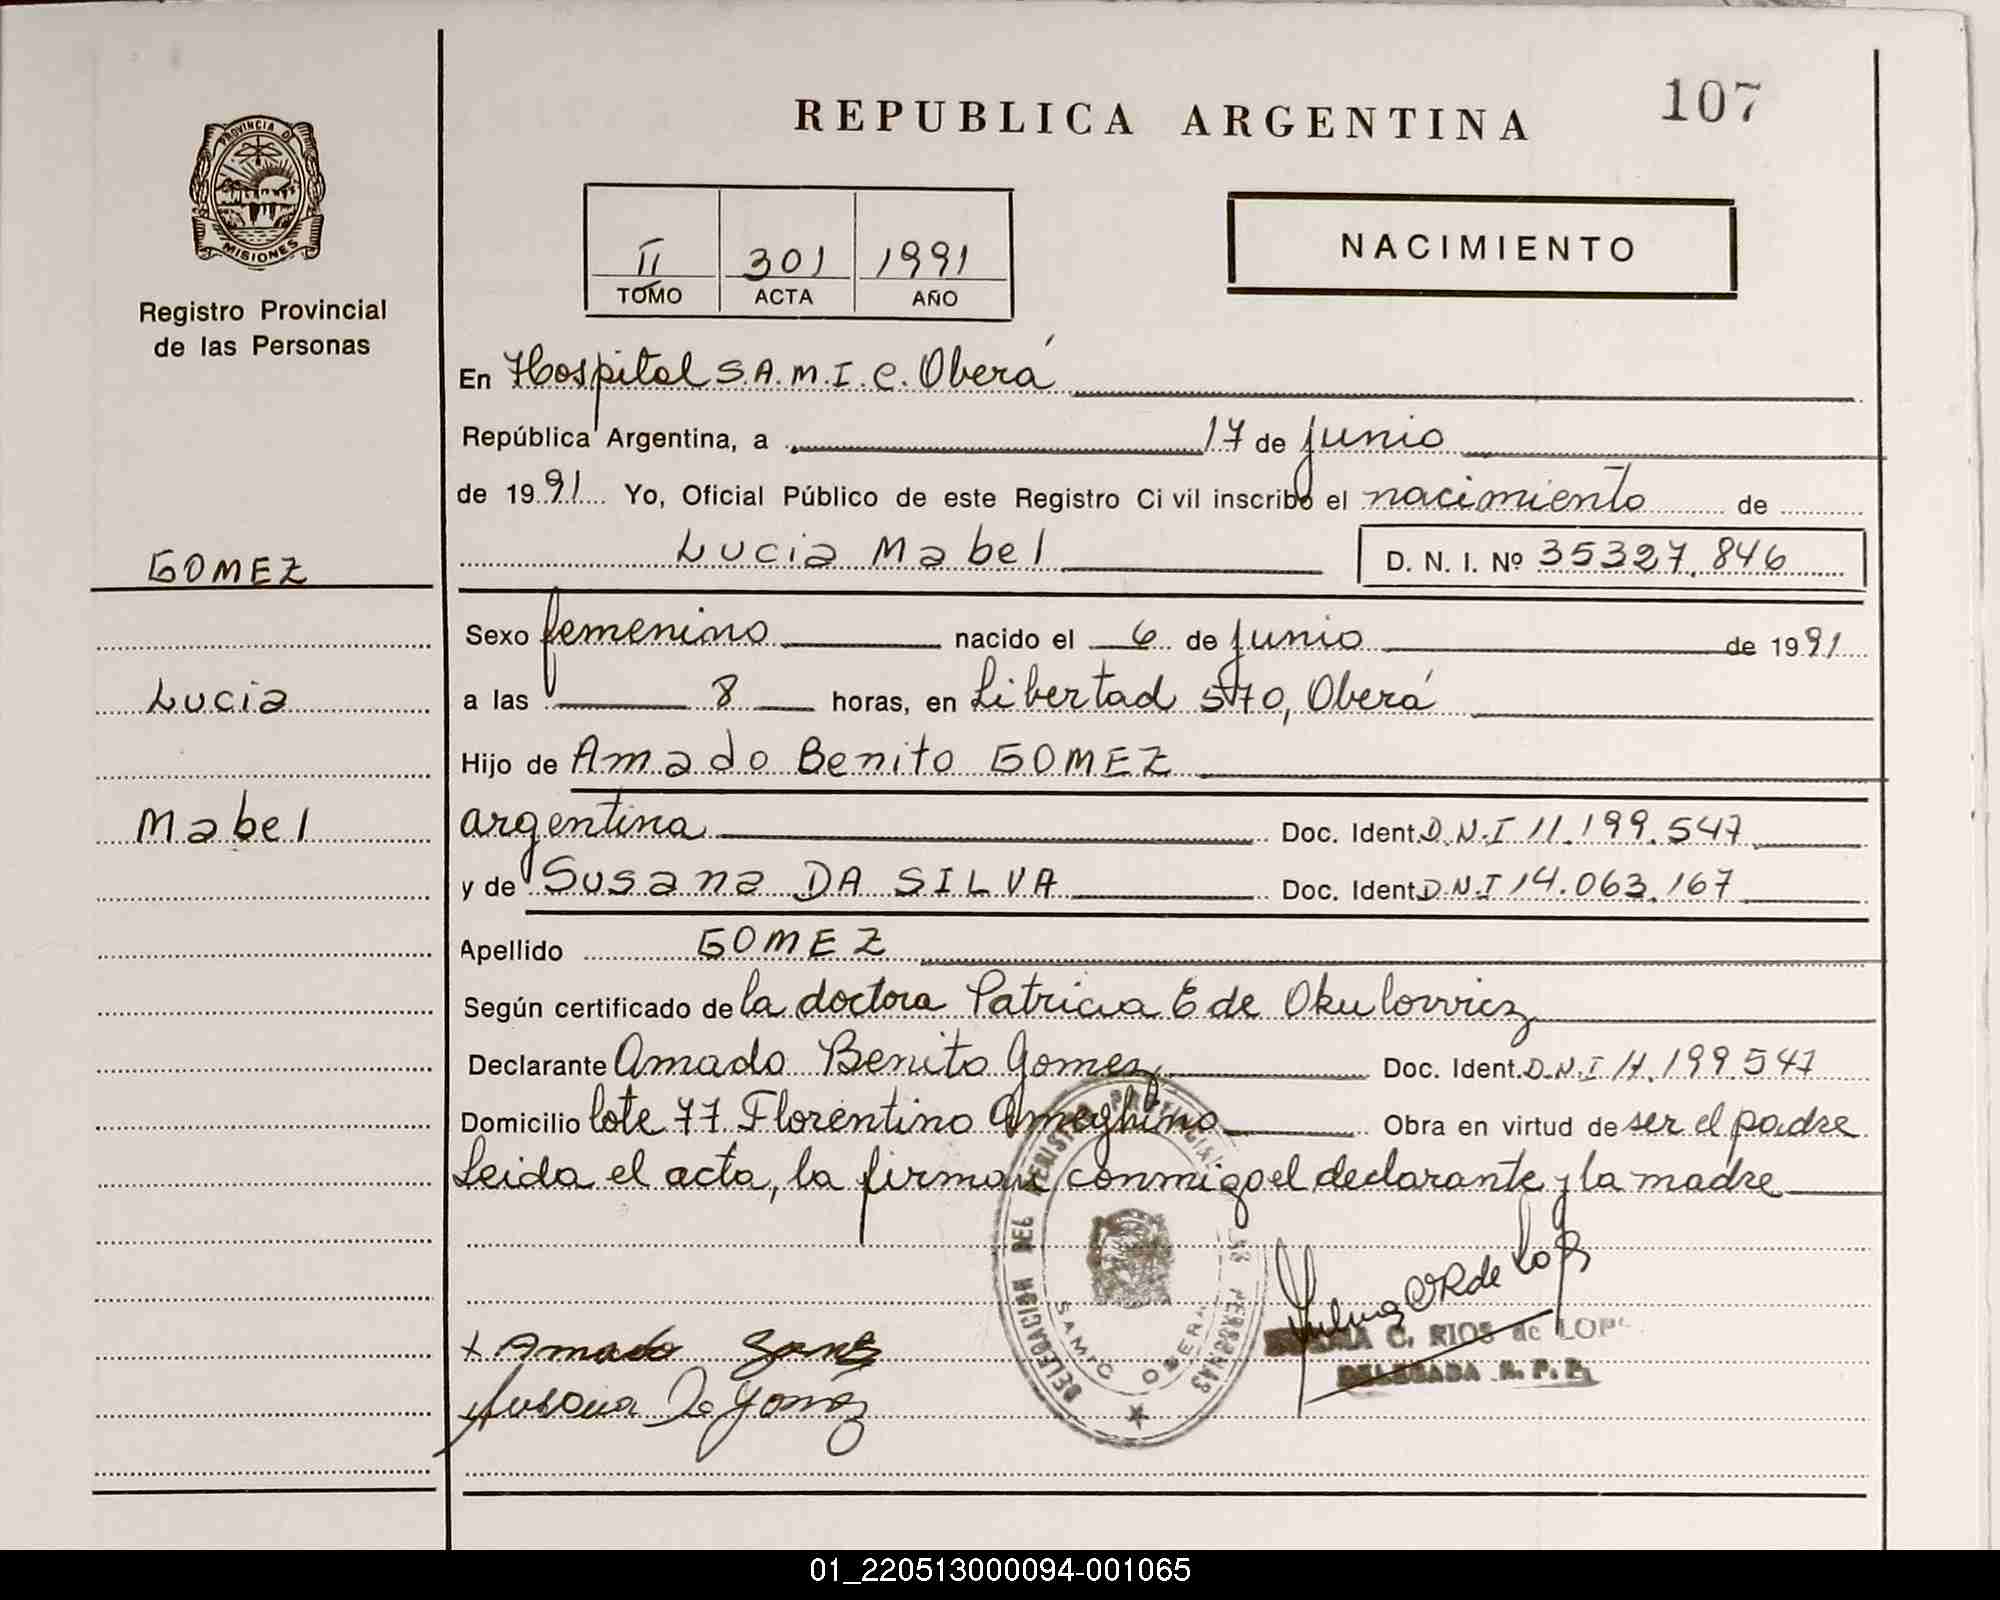 107
REPUBLICA ARGENTINA
PROVINCIA D
MISIONES
Registro Provincial
de las Personas
II 301 1991
TOMO ACTA AÑO
NACIMIENTO
En Hospital S.A.M.I.C. Oberá
República Argentina, a 17 de junio
de 1991 Yo, Oficial Público de este Registro Civil inscribo el nacimiento de
Lucia Mabel D. N. I. Nº 35327.846
GOMEZ
Sexo femenino nacido el 6 de junio de 1991
Lucia
a las 8 horas, en Libertad 570, Oberá
Hijo de Amado Benito GOMEZ
Mabel
argentina Doc. Ident. D.N.I 11.199.547
y de Susana DA SILVA Doc. Ident. D.N.I 14.063.167
Apellido GOMEZ
Según certificado de la doctora Patricia E de Okulovvicz
Declarante Amado Benito Gomez Doc. Ident. D.N.I 11.199.547
Domicilio lote 77 Florentino Ameghino Obra en virtud de ser el padre
Leida el acta, la firman conmigo el declarante y la madre
DELEGACION DEL REGISTRO PROVINCIAL DE LAS PERSONAS
SAMIC OBERA
C. RIOS de LOPE
DELEGADA R. P. P.
x Amado
Susana
01_220513000094-001065